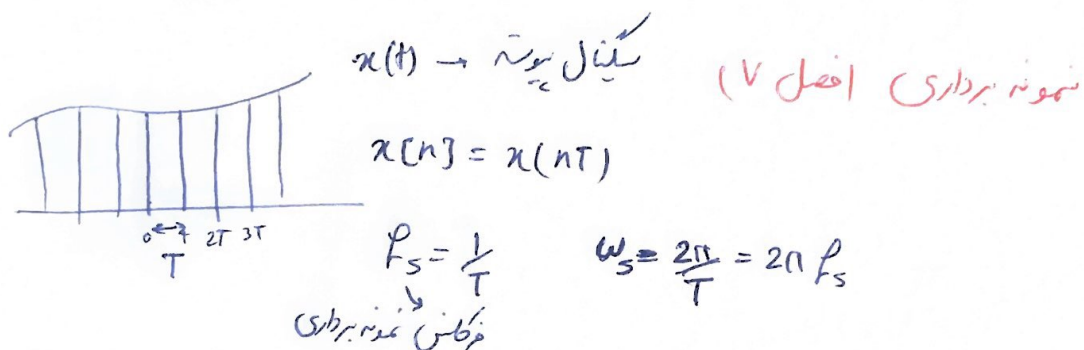 نمونه برداری (فصل ۷)
x(t) → سیگنال پیوسته
x[n] = x(nT)
0 T 2T 3T
T
f_s = 1/T    ω_s = 2π/T = 2π f_s
فرکانس نمونه برداری